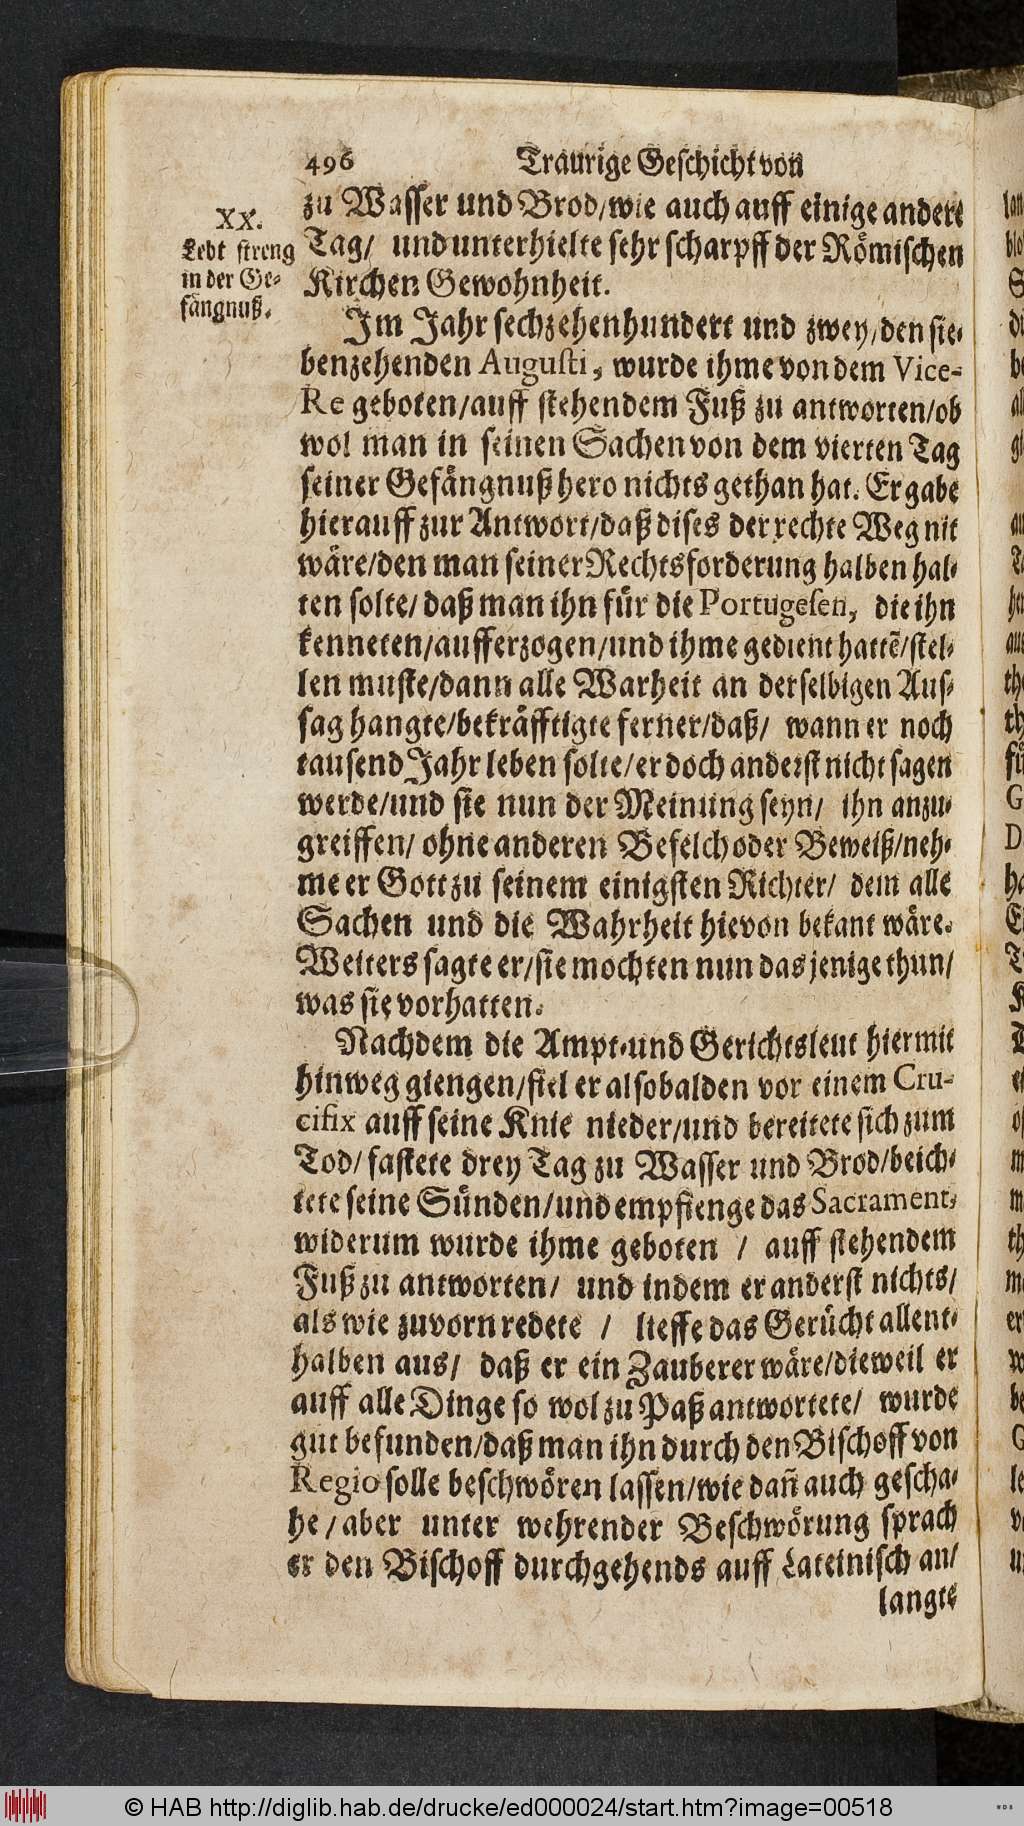 496 Traurige Geschicht von
XX.
Lebt streng
in der Ge-
fängnuß.
zu Wasser und Brod/wie auch auff einige andere
Tag/ und unterhielte sehr scharpff der Römischen
Kirchen Gewohnheit.
Im Jahr sechzehenhundert und zwey/den sie-
benzehenden Augusti, wurde ihme von dem Vice-
Re geboten/auff stehendem Fuß zu antworten/ob
wol man in seinen Sachen von dem vierten Tag
seiner Gefängnuß hero nichts gethan hat. Er gabe
hierauff zur Antwort/daß dises der rechte Weg nit
wäre/den man seiner Rechtsforderung halben hal-
ten solte/ daß man ihn für die Portugesen, die ihn
kenneten/aufferzogen/und ihme gedient hattē/stel-
len muste/dann alle Warheit an derselbigen Aus-
sag hangte/bekräfftigte ferner/daß/ wann er noch
tausend Jahr leben solte/er doch anderst nicht sagen
werde/und sie nun der Meinung seyn/ ihn anzu-
greiffen/ ohne anderen Befelch oder Beweiß/neh-
me er Gott zu seinem einigsten Richter/ dem alle
Sachen und die Wahrheit hievon bekant wäre.
Weiters sagte er/sie mochten nun das jenige thun/
was sie vorhatten.
Nachdem die Ampt-und Gerichtsleut hiermit
hinweg giengen/fiel er alsobalden vor einem Cru-
cifix auff seine Knie nieder/und bereitete sich zum
Tod/ fastete drey Tag zu Wasser und Brod/beich-
tete seine Sünden/und empfienge das Sacrament,
widerum wurde ihme geboten / auff stehendem
Fuß zu antworten/ und indem er anderst nichts/
als wie zuvorn redete / lieffe das Gerücht allent-
halben aus/ daß er ein Zauberer wäre/dieweil er
auff alle Dinge so wol zu Paß antwortete/ wurde
gut befunden/daß man ihn durch den Bischoff von
Regio solle beschwören lassen/wie dañ auch gescha-
he/aber unter wehrender Beschwörung sprach
er den Bischoff durchgehends auff Lateinisch an/
langte
© HAB http://diglib.hab.de/drucke/ed000024/start.htm?image=00518